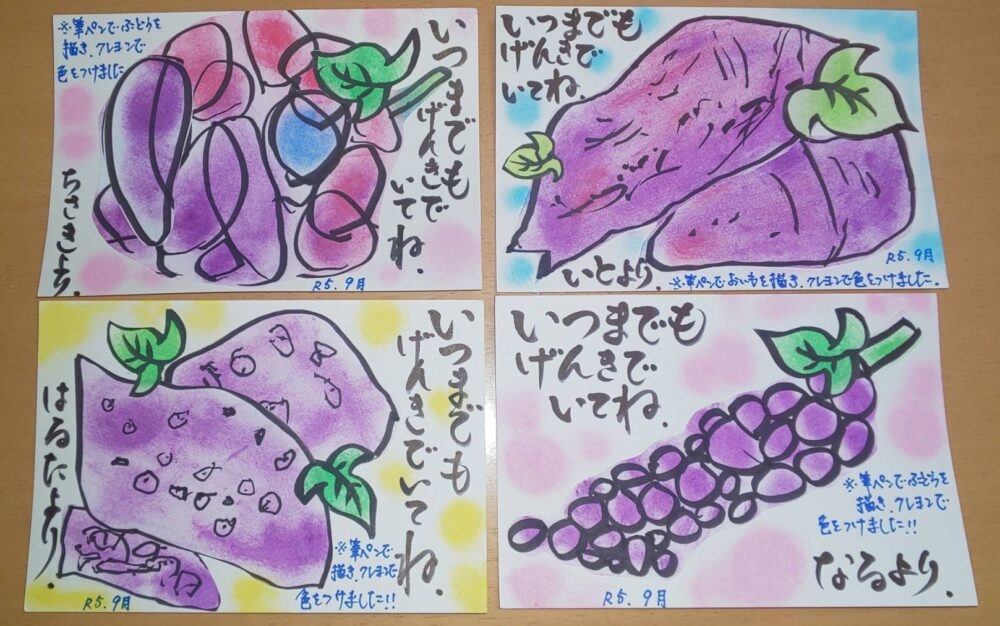 ※筆ペンでぶどうを
描き、クレヨンで
色をつけました
いつまでも
げんきで
いてね.
ちさきより.
R5.9月
いつまでも
げんきで
いてね.
いとより.
R5.9月
※筆ペンでおいもを描き、クレヨンで色をつけました.
いつまでも
げんきでいてね.
はるたより.
※筆ペンで
描き、クレヨンで
色をつけました!!
R5.9月
いつまでも
げんきで
いてね.
※筆ペンでぶどうを
描き、クレヨンで
色をつけました!!
なるより.
R5.9月